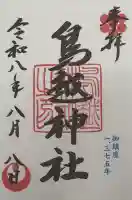 奉拝
御鎮座
一三七五年
鳥越神社
令和八年八月八日